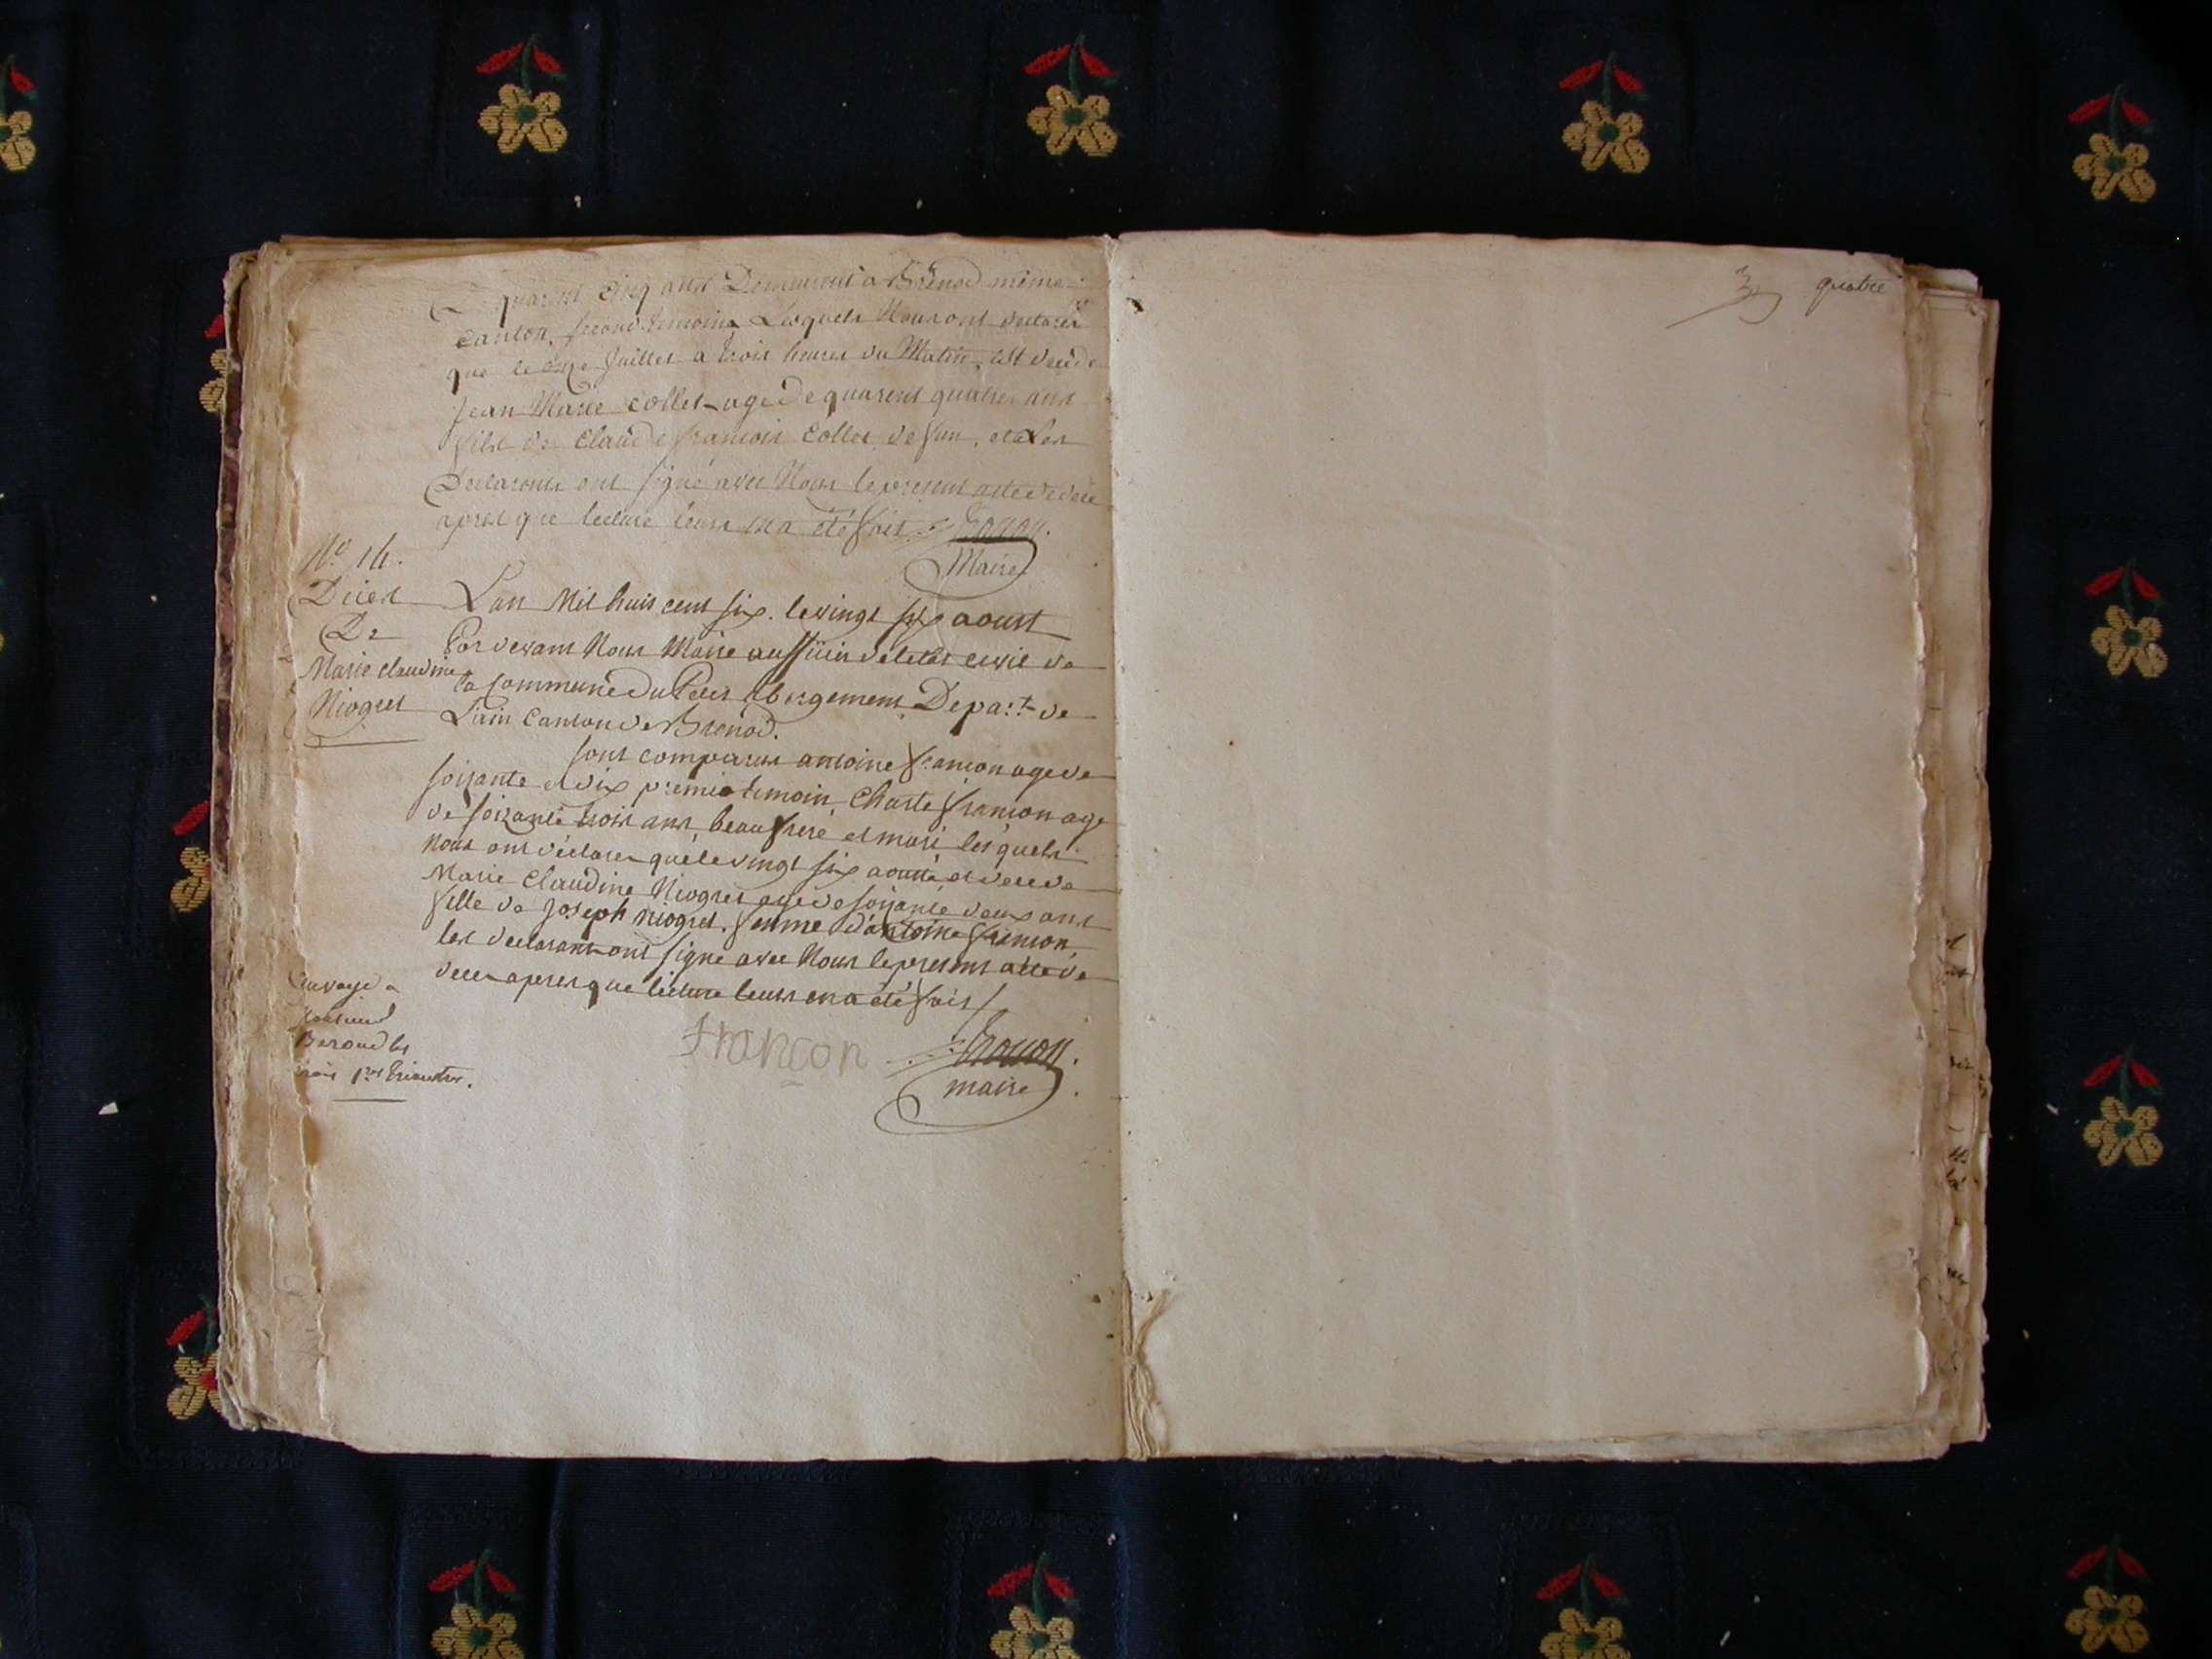 quarent cinq ans Demeurent a Brénod même
canton, second temoins Lesquels Nous ont declarer
que le onze Juillet a trois heures du Matin, est decede
Jean Marie Collet age de quarent quatre ans
fils de Claude françois Collet, defun, et Les
Declarents ont signé avec Nous le present acte de decé
apres que lecture leurs en a été fait
Maire
N.o 14.
Décert
De
Marie Claudine
Niogret
L'an Mil huis cent six. le vingt six aoust
Par devant Nous Maire aufficier de letat civil de
la Commune Du Petit Abergement, Depart. de
L'ain Canton de Brenod.
sont comparus antoine françon age de
soixante et dix premier temoin, Charle françon age
de soixante trois ans, beau frere et mari lesquels
nous ont déclarer que le vingt six aoust est decede
Marie Claudine Niogret age de soixante deux ans
fille de Joseph Niogret, femme d'antoine françon,
les declarant ont signé avec Nous le present acte de
decer apres que lecture leurs en a été fait
françon
maire
Envoyé a
Monsieur
Beroud les
trois 1ers Trimestre.
3 quatre